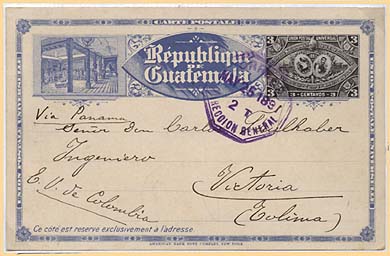 CARTE POSTALE
République
DE
Guatemala
UNION POSTAL UNIVERSAL
3 3
CENTAVOS
189
2 T
DIRECCION GENERAL
Via Panama
Señor Don Carlos
Ingeniero
E. U. de Colombia
Victoria
(Tolima)
Ce côté est reservé exclusivement à l'adresse.
AMERICAN BANK NOTE COMPANY, NEW YORK.